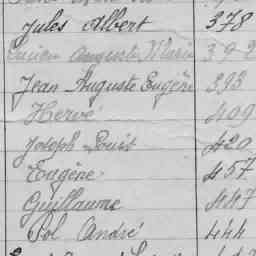 Jules Albert 378
Lucien Auguste Marie 392
Jean Auguste Eugène 393
Hervé 409
Joseph Louis 420
Eugène 457
Guillaume 447
Pol André 444